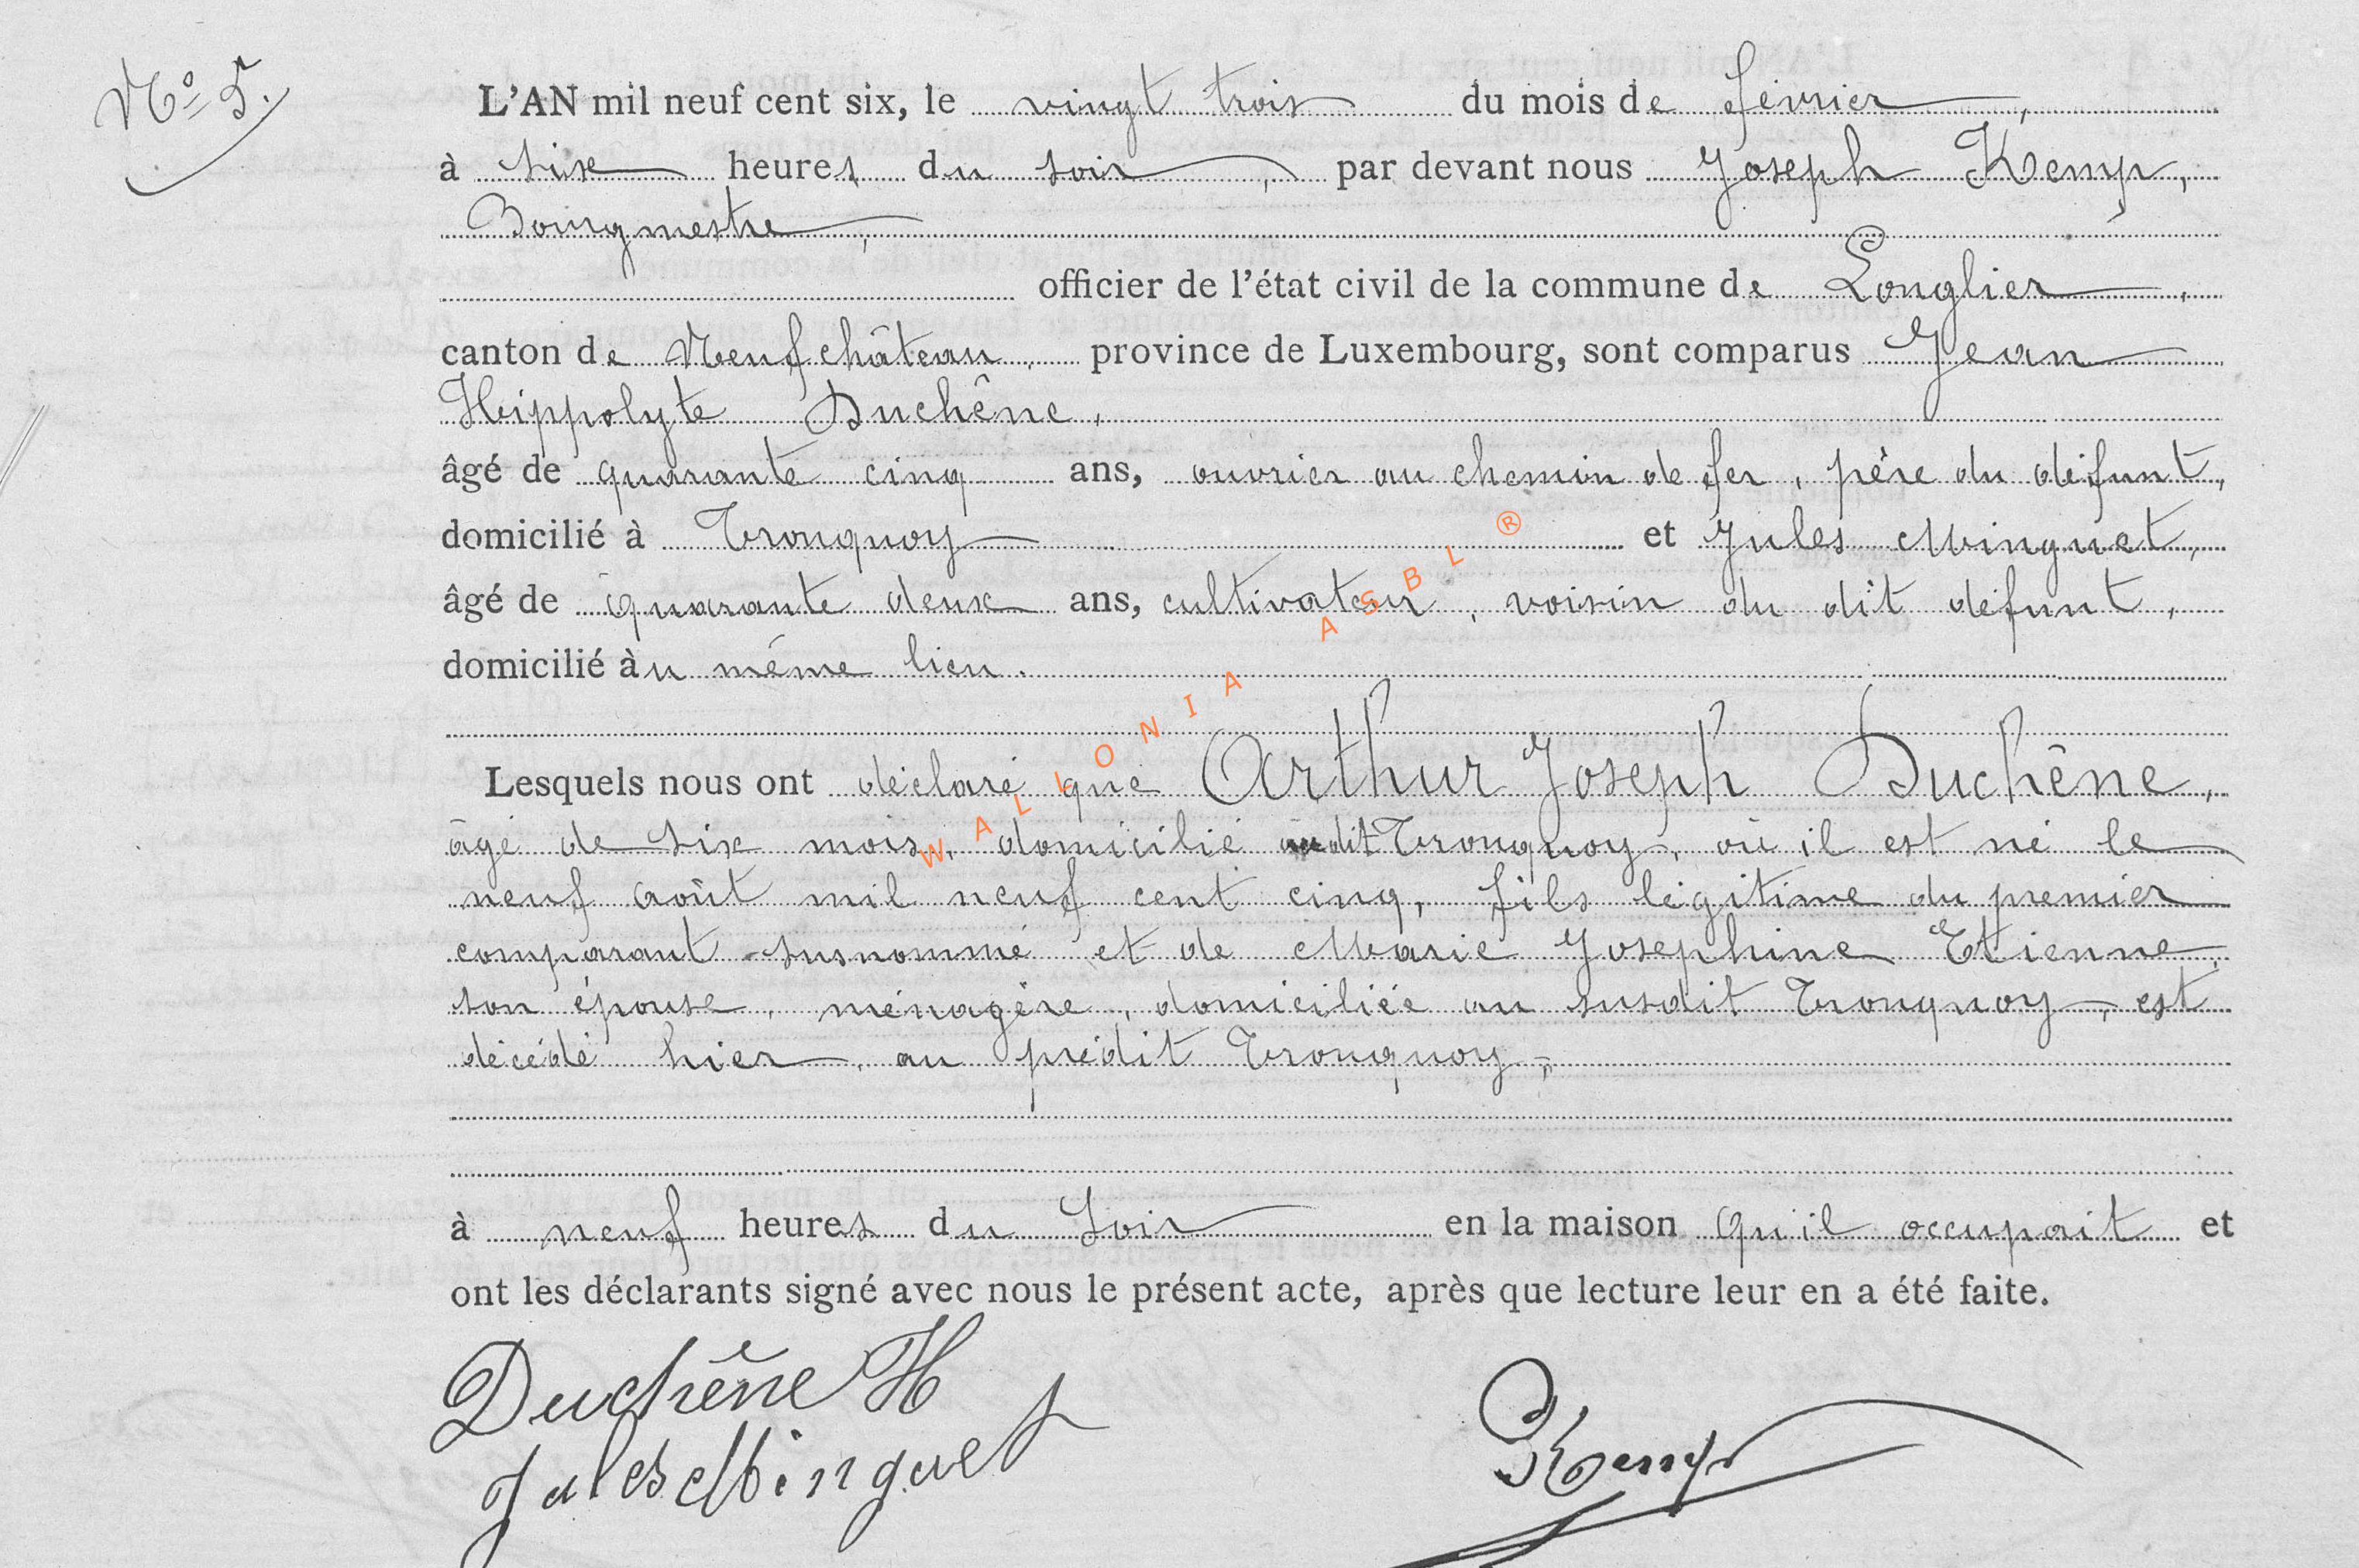 N° 5.
L'AN mil neuf cent six, le vingt trois du mois de février,
à six heures du soir, par devant nous Joseph Kemp,
Bourgmestre,
officier de l'état civil de la commune de Longlier,
canton de Neufchâteau, province de Luxembourg, sont comparus Jean
Hippolyte Duchêne,
âgé de quarante cinq ans, ouvrier au chemin de fer, père du défunt,
domicilié à Tronquoy et Jules Minguet,
âgé de quarante deux ans, cultivateur, voisin du dit défunt,
domicilié àu même lieu.
Lesquels nous ont déclaré que Arthur Joseph Duchêne,
âgé de six mois, domicilié au dit Tronquoy, où il est né le
neuf août mil neuf cent cinq, fils légitime du premier
comparant susnommé et de Marie Josephine Etienne,
son épouse, ménagère, domiciliée au susdit Tronquoy, est
décédé hier, au prédit Tronquoy,
à neuf heures du soir en la maison qu'il occupait et
ont les déclarants signé avec nous le présent acte, après que lecture leur en a été faite.
Duchêne H
Jules Minguet
Kemp
WALLONIA ASBL ®